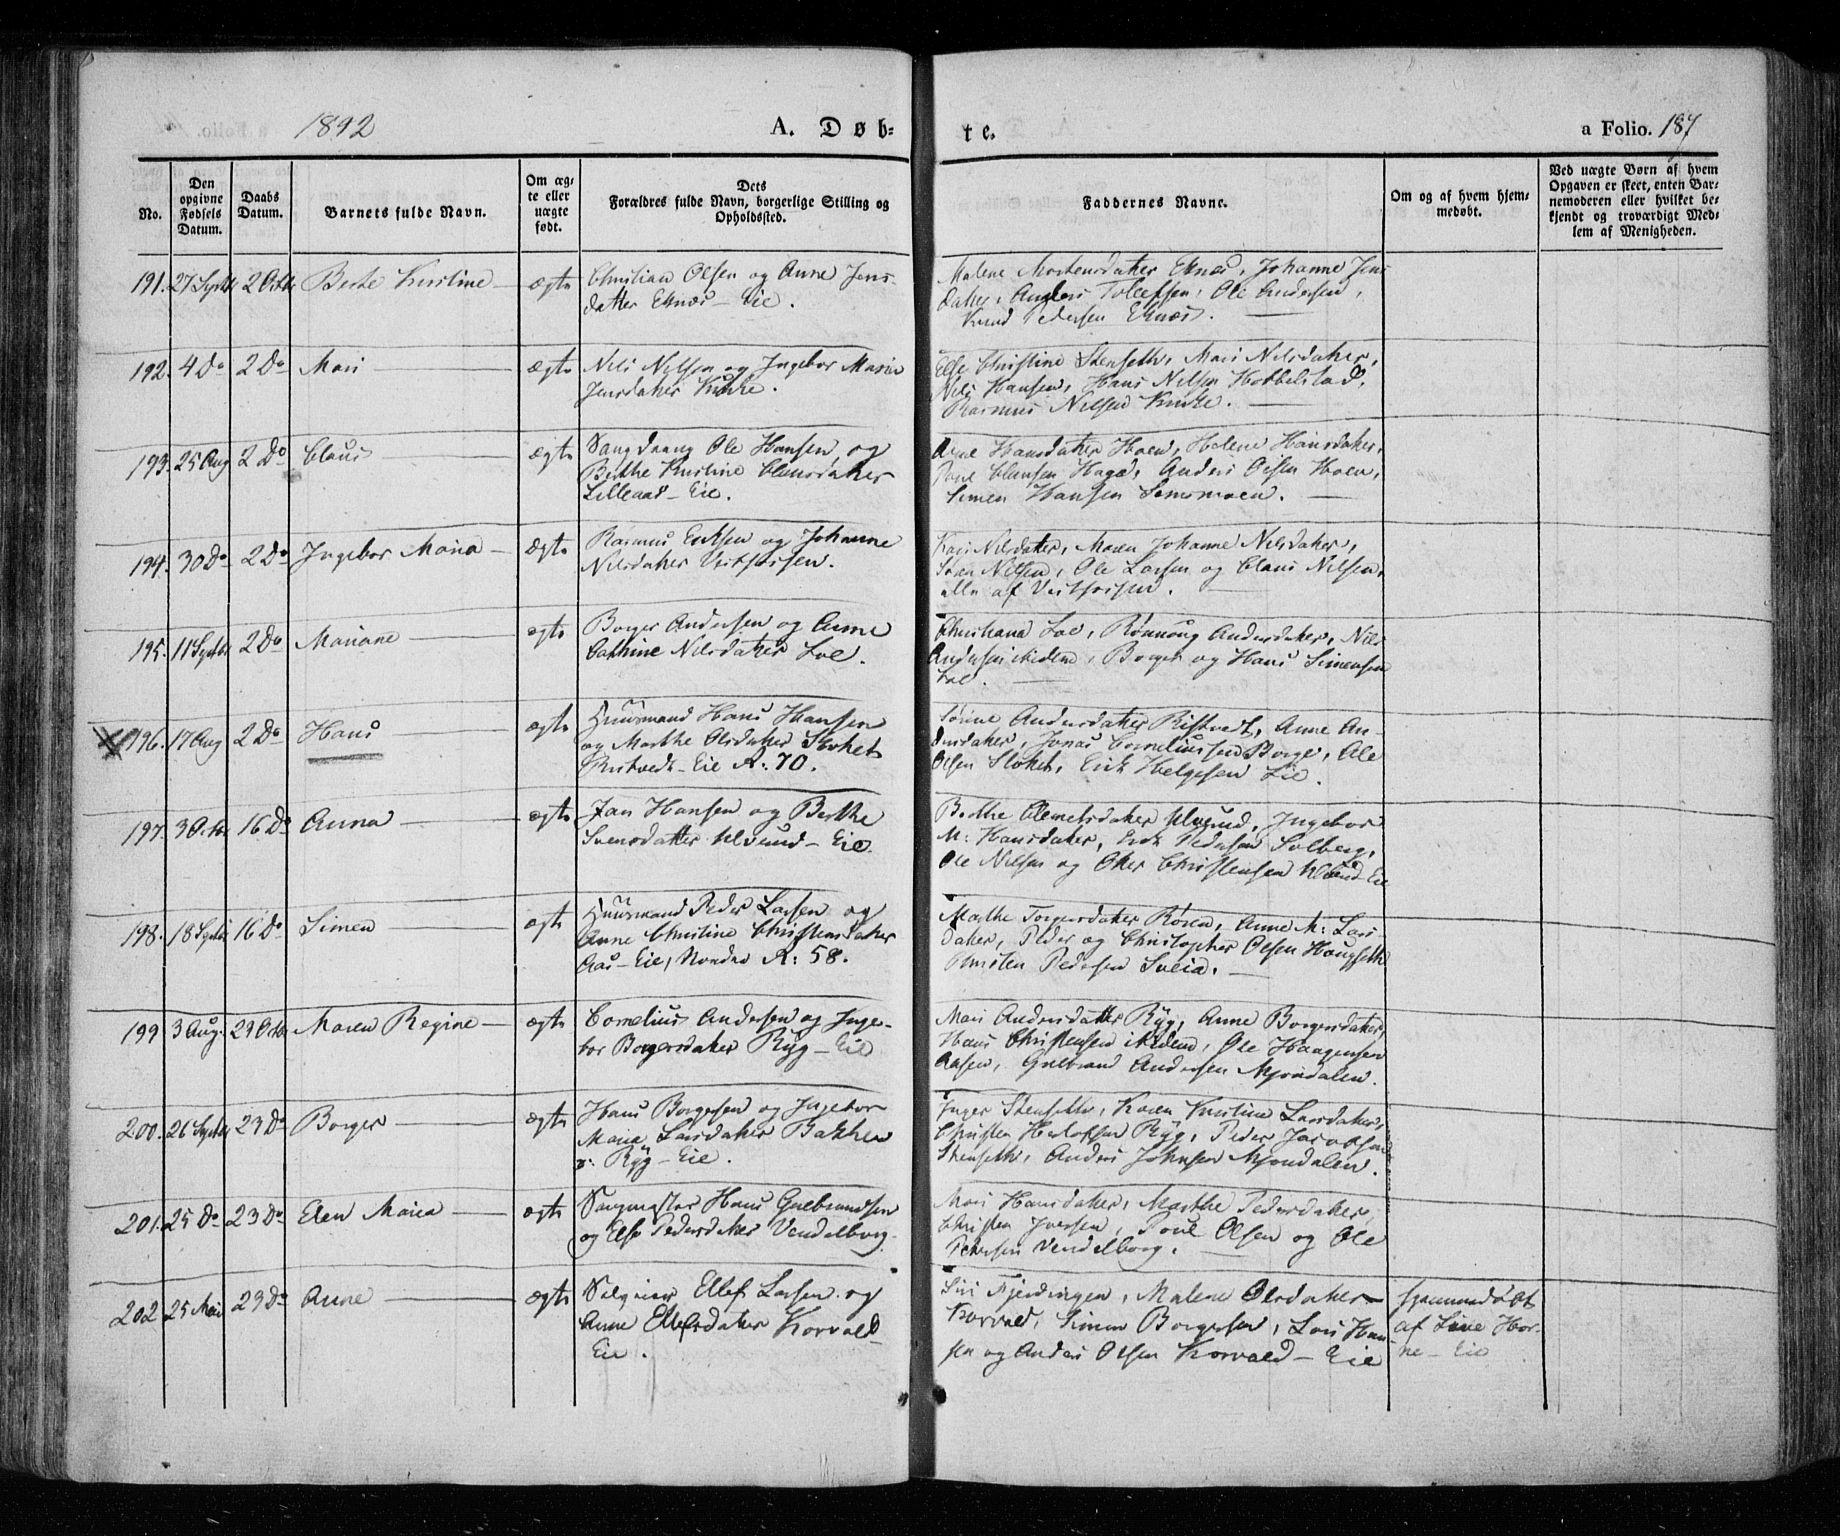 1842
A. Døb-
te.
a Folio. 187
No.
Den opgivne Fødsels Datum.
Daabs Datum.
Barnets fulde Navn.
Om ægte eller uægte født.
Dets Forældres fulde Navn, borgerlige Stilling og Opholdssted.
Faddernes Navne.
Om og af hvem hjemmedøbt.
Ved uægte Børn af hvem Opgaven er skeet, enten Barnemoderen eller hvilket bekjendt og troværdigt Medlem af Menigheden.
191. 27 Septb 2 Octb Berte Kirstine ægte Christian Olsen og Anne Jens-
datter Eknæs - Eie.
Malene Mortensdatter Eknæs, Johanne Jens
datter, Anders Tollefsen, Ole Andersen,
Knud Pedersen Eknæs.
192. 4 Do 2 Do Mari ægte Nils Nilsen og Ingebor Marie
Jensdatter
Else Christine Stenseth, Mari Nilsdatter,
Nils Hansen, Hans Nilsen Hobbelstad,
Rasmus Nilsen
193. 25 Aug 2 Do Claus ægte Ole Hansen og
Berthe Kirstine Clausdatter
Lilleaas - Eie.
Anne Hansdatter Hoen, Helene Hansdatter,
Clausen Anders Olsen Hoen,
Simen Hansen
194. 30 Do 2 Do Ingebor Maria ægte Rasmus Eriksen og Johanne
Nilsdatter Vestfossen.
Kari Nilsdatter, Maren Johanne Nilsdatter,
Nilsen, Ole Larsen og Claus Nilsen,
alle af Vestfossen.
195. 11 Septbr 2 Do Mariane ægte Borger Andersen og Anne
Cathrine Nilsdatter Loe.
Christiana Loe, Rønnoug Andersdatter, Nils
Andersen ibidem, Borger og Hans Simensen
Loe.
196. 17 Aug 2 Do Hans ægte Huusmand Hans Hansen
og Marthe Olsdatter Stoket
Ristvedt - Eie R: 70.
Andersdatter Ristvedt, Anne An-
dersdatter, Jonas Corneliussen Borge, Ole
Olsen Stoket, Erik Helgesen Lie.
197. 3 Octbr 16 Do Anna ægte Jan Hansen og Berthe
Svensdatter Ulvund - Eie.
Berthe Clemetsdatter Ulvund, Ingebor
M: Hansdatter, Erik Pedersen Solberg,
Ole Nilsen og Christensen Ulvund Eie
198. 18 Septbr 16 Do Simen ægte Huusmand Peder Larsen og
Anne Christine Christensdatter
Aas - Eie, R: 58.
Marthe Torgersdatter Røren, Anne M: Lars
datter, Peder og Christopher Olsen Hougseth
Pedersen Sveia.
199 3 Aug. 29 Octbr Maren Regine ægte Cornelius Andersen og Inge-
bor Borgersdatter Ryg - Eie
Mari Andersdatter Ryg, Anne Borgersdatter,
Hans Christensen ibidem, Ole Haagensen
Aasen, Gulbrand Andersen Mjøndalen.
200. 26 Septbr 23 Do Borger ægte Hans Borgersen og Ingebor
Maria Larsdatter Bakken
v: Ryg - Eie.
Inger Stenseth, Karen Kirstine Larsdatter,
Christen Ryg, Peder Jacobsen
Stenseth, Anders Johnsen Mjøndalen.
201. 25 Do 23 Do Elen Maria ægte Hans Gulbrandsen
og Else Pedersdatter Vendelborg.
Mari Hansdatter, Marthe Pedersdatter,
Christen Iversen, Poul Olsen og Ole
Pedersen Vendelborg.
202 25 Mai 23 Do Anne ægte Selveier Ellef Larsen og
Anne Ellefsdatter Korvald
Eie.
Siri Fjerdingen, Malene Olsdatter
Korvald, Simen Borgersen, Lars Han
sen og Anders Olsen Korvald - Eie
hjemmedøbt
af Hor-
ne - Eie